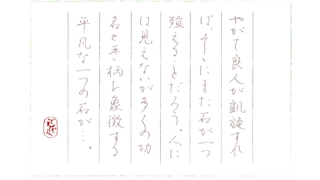 やがて良人が凱旋すれ
ば、そこにまた石が一つ
殖えることだろう。人に
は見えないが多くの功
名と手柄を象徴する
平凡な一つの石が…。